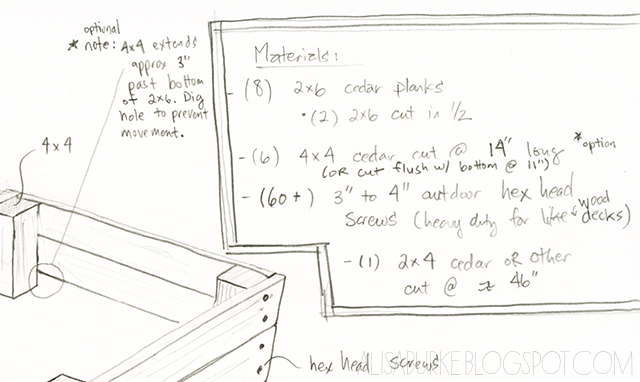 optional
* note: 4x4 extends
approx 3"
past bottom
of 2x6. Dig
hole to prevent
movement.
4x4
Materials:
- (8) 2x6 cedar planks
• (2) 2x6 cut in 1/2
- (6) 4x4 cedar cut @ 14" long *option
(OR cut flush w/ bottom @ 11")
- (60+) 3" to 4" outdoor hex head
screws (heavy duty for like wood decks)
- (1) 2x4 cedar OR other
cut @ ≈ 46"
hex head screws
ALISABURKE.BLOGSPOT.COM